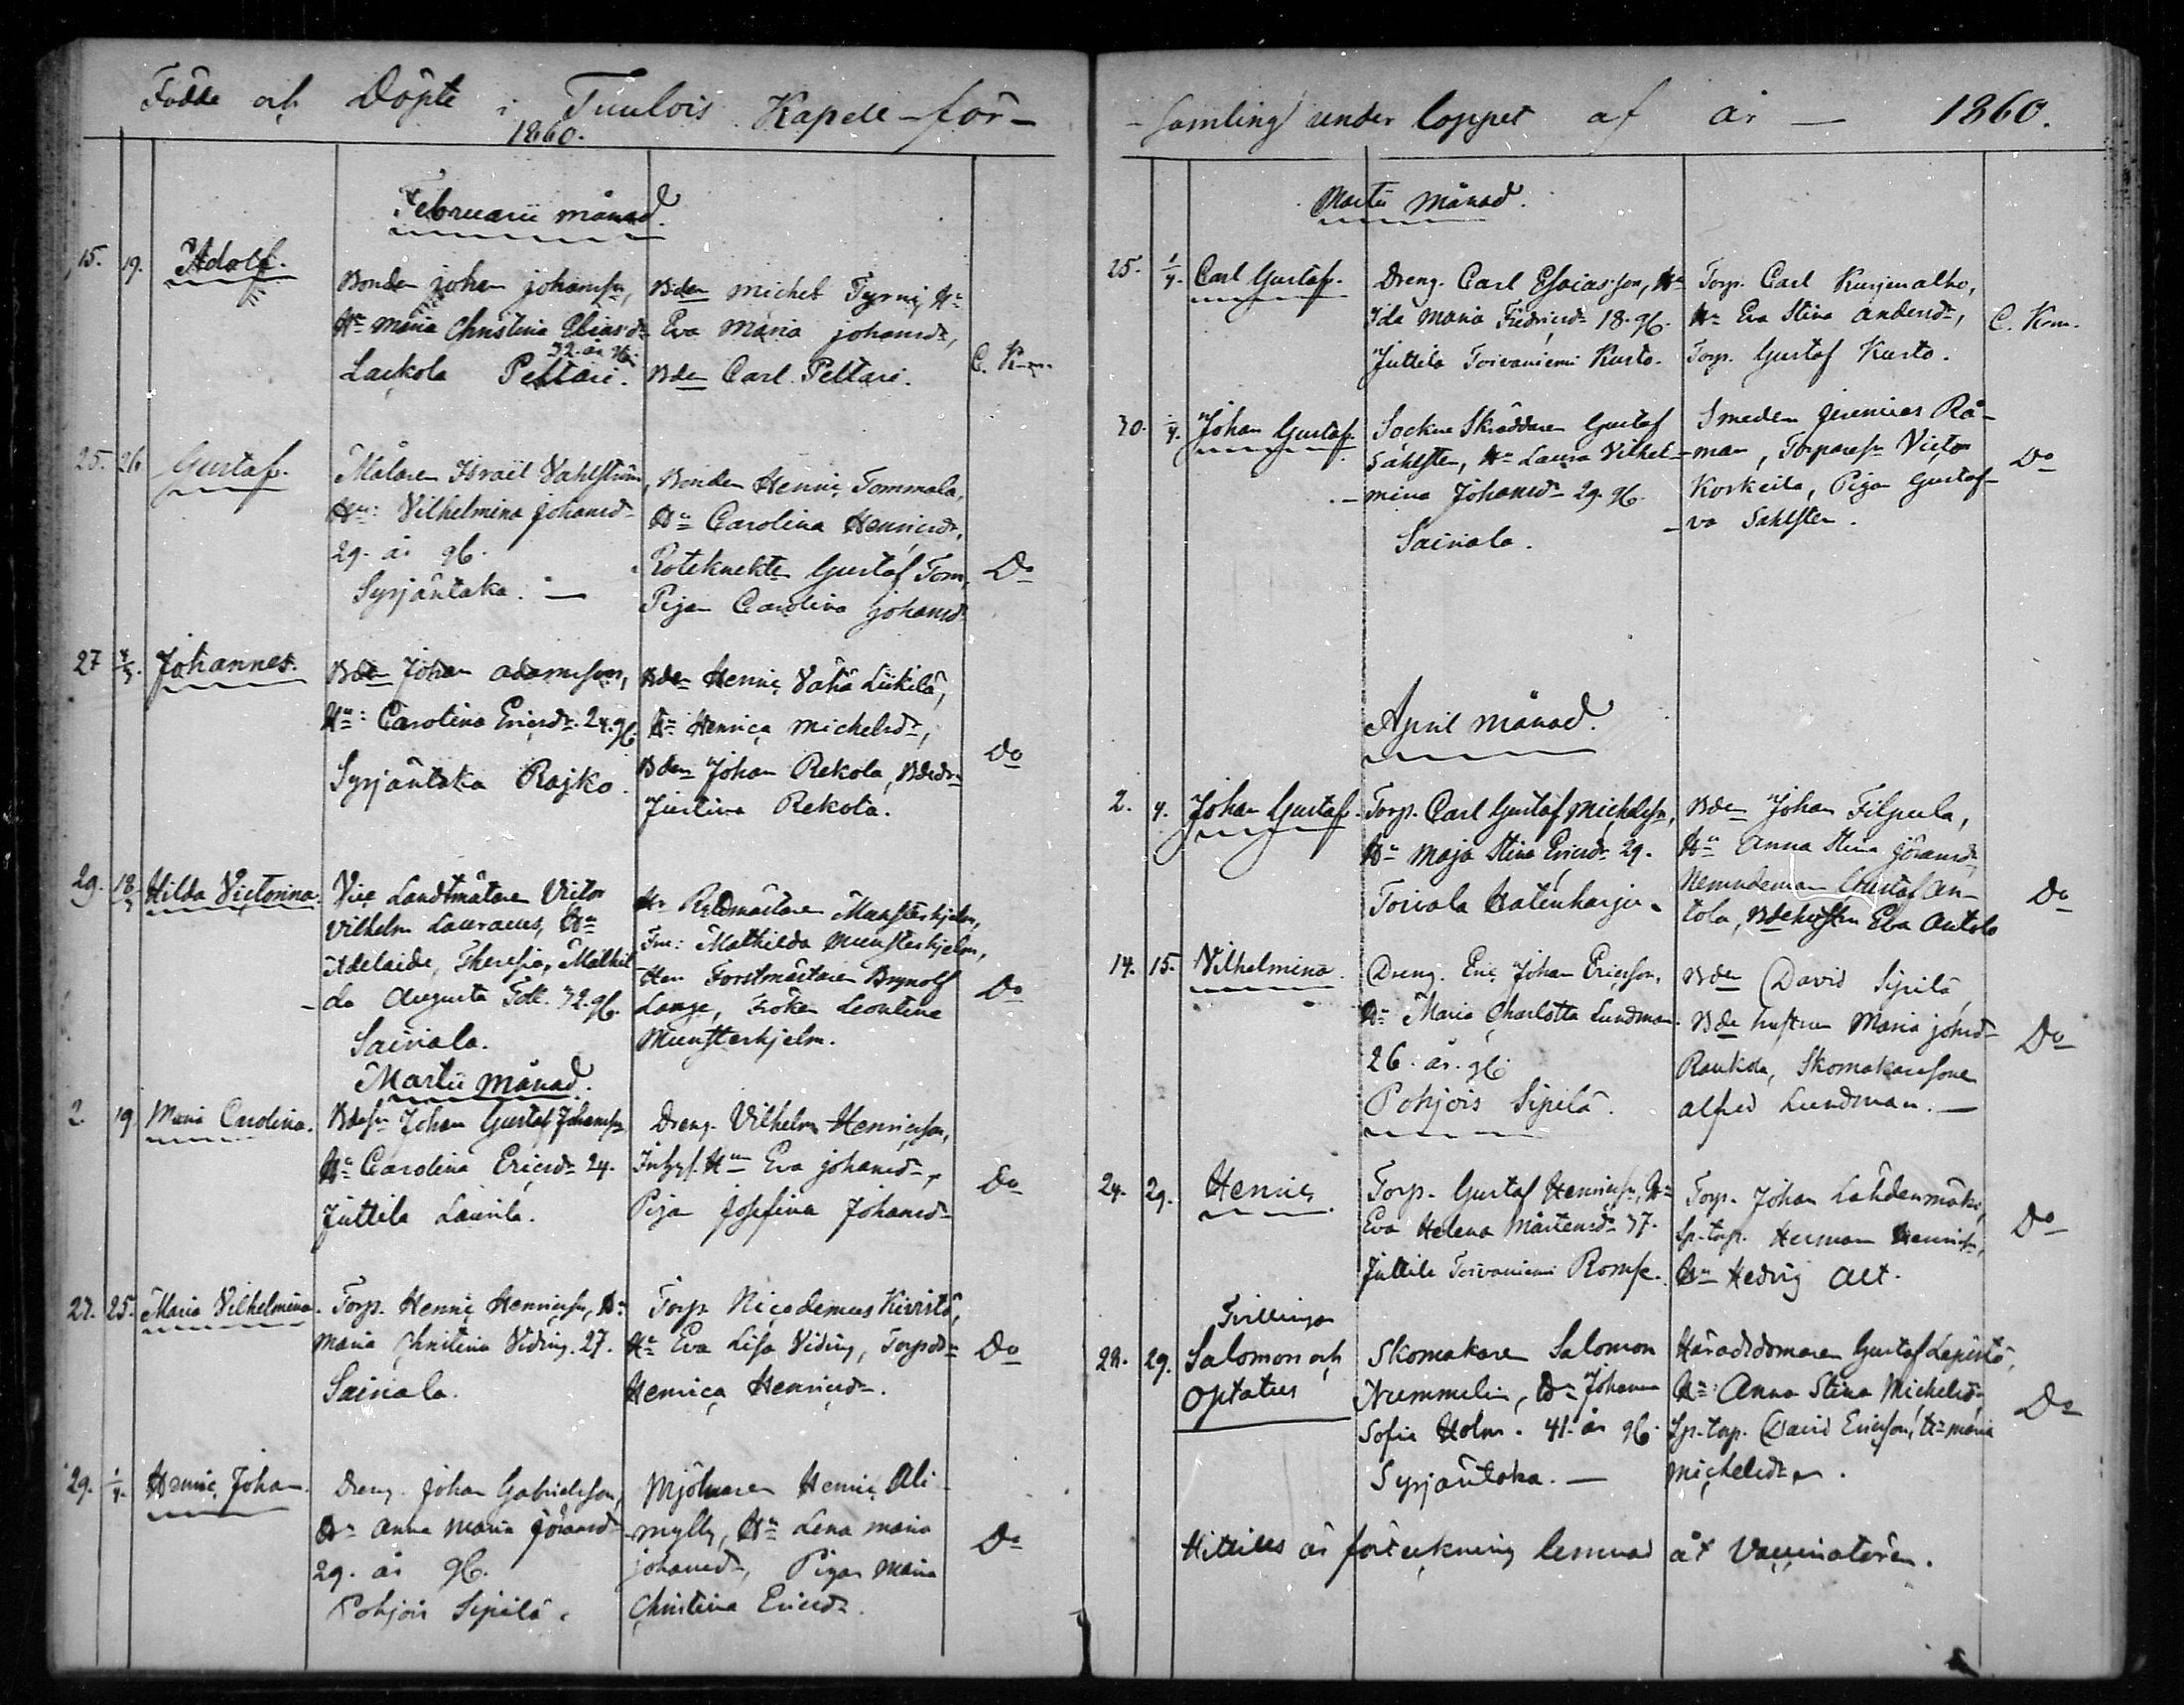 Födde och Döpte i Tuulois Kapell-för-
1860.
Februarii månad.
15. 19. Adolf.
Bonden Johan Johansson,
Hu Maria Christina Eliasdr
32. år gl.
Laukola Peltari.
Bden Michel Tyrni, Hu
Eva Maria Johansdr,
Bden Carl Peltari.
C. Km.
25. 26 Gustaf.
Målaren Israël Vahlström,
Hu: Vilhelmina Johansd
29. år gl.
Syrjäntaka. —
Bonden Henric Tommola,
Hu Carolina Henricsdr,
Roteknekten Gustaf Tom,
Pigan Carolina Johansdr
Do
27 4/3. Johannes.
Bden Johan Adamsson,
Hu: Carolina Ericsdr 24. gl.
Syrjäntaka Rajko.
Bden Henric Vähä Liikilä,
Hu Henrica Michelsdr,
Bden Johan Rekola, Bdedr
Justina Rekola.
Do
29. 18/3 Hilda Victorina.
Vice Landtmätaren Victor
Vilhelm Lauraeus, Hu
Adelaide, Theresia, Mathil-
-da Augusta 32. gl.
Sairiala.
Hr Munsterhjelm,
Fru: Mathilda Munsterhjelm,
Herr Forstmästaren Brynolf
Lange, Fröken Leontine
Munsterhjelm.
Do
Martii månad.
2. 19 Maria Carolina.
Bdesn Johan Gustaf Johansson
Hu Carolina Ericsdr 24.
Juttila Laurila.
Dreng. Vilhelm Henricsson,
Inhys. Hu Eva Johansdr,
Pigan Josefina Johansdr
Do
27. 25. Maria Vilhelmina.
Torp. Henric Henricsson, Hu
Maria Christina Viding. 27.
Sairiala.
Torp. Nicodemus Kivistö,
Hu Eva Lisa Viding, Torpdr
Henrica Henricsdr.
Do
29. 1/4. Henric Johan.
Dreng. Johan Gabrielsson,
Hu Anna Maria Göransdr
29. år gl.
Pohjois Sipilä.
Mjölnaren Henric Ali-
mylly, Hu Lena Maria
Johansdr, Pigan Maria
Christina Ericsdr.
Do
-samling under loppet af år — 1860.
Martii månad.
25. 1/4. Carl Gustaf.
Dreng. Carl Esaiasson, Hu
Ida Maria Fredricsdr 18. gl.
Juttila Toivaniemi Kusto.
Torp. Carl Kurjenalho,
Hu Eva Stina Andersdr,
Torp. Gustaf Kusto.
C. Km.
30. 1/4. Johan Gustaf.
Sockne Skräddaren Gustaf
Sahlsten, Hu Laura Vilhel-
-mina Johansdr 29. gl.
Sairiala.
Smeden Jeremias Rå-
-man, Torparesn Victor
Korkeila, Pigan Gustaf-
-va Sahlsten.
Do
April månad.
2. 4. Johan Gustaf.
Torp. Carl Gustaf Michelsson,
Hu Maja Stina Ericsdr 29.
Toivola Hatunharju.
Bden Johan Filpula,
Hu Anna Stina Göransdr,
Nemndeman Gustaf An-
tola, Bdehustrun Eva Antola
Do
14. 15. Vilhelmina.
Dreng. Eric Johan Ericsson,
Hu Maria Charlotta Lundman.
26. år. gl.
Pohjois Sipilä.
Bden David Sipilä,
Bde hustrun Maria Johsd
Raukola, Skomakaresonen
Alfred Lundman. —
Do
24. 29. Henric.
Torp. Gustaf Henricsson, Hu
Eva Helena Mårtensdr 37.
Juttila Toivaniemi Romse.
Torp. Johan Lähdenmäki,
Sp. torp. Herman Henricsson,
Hu Hedvig Alt.
Do
Tvillingar
28. 29. Salomon och
Optatus
Skomakaren Salomon
Nummelin, Hu Johanna
Sofia Holm. 41. år gl.
Syrjäntaka. —
Häradsdomaren Gustaf Lepistö,
Hu: Anna Stina Michelsdr,
Sp. torp. David Ericsson, Hu Maria
Michelsdr.
Do
Hittills är förteckning lemnad åt Vaccinatören.